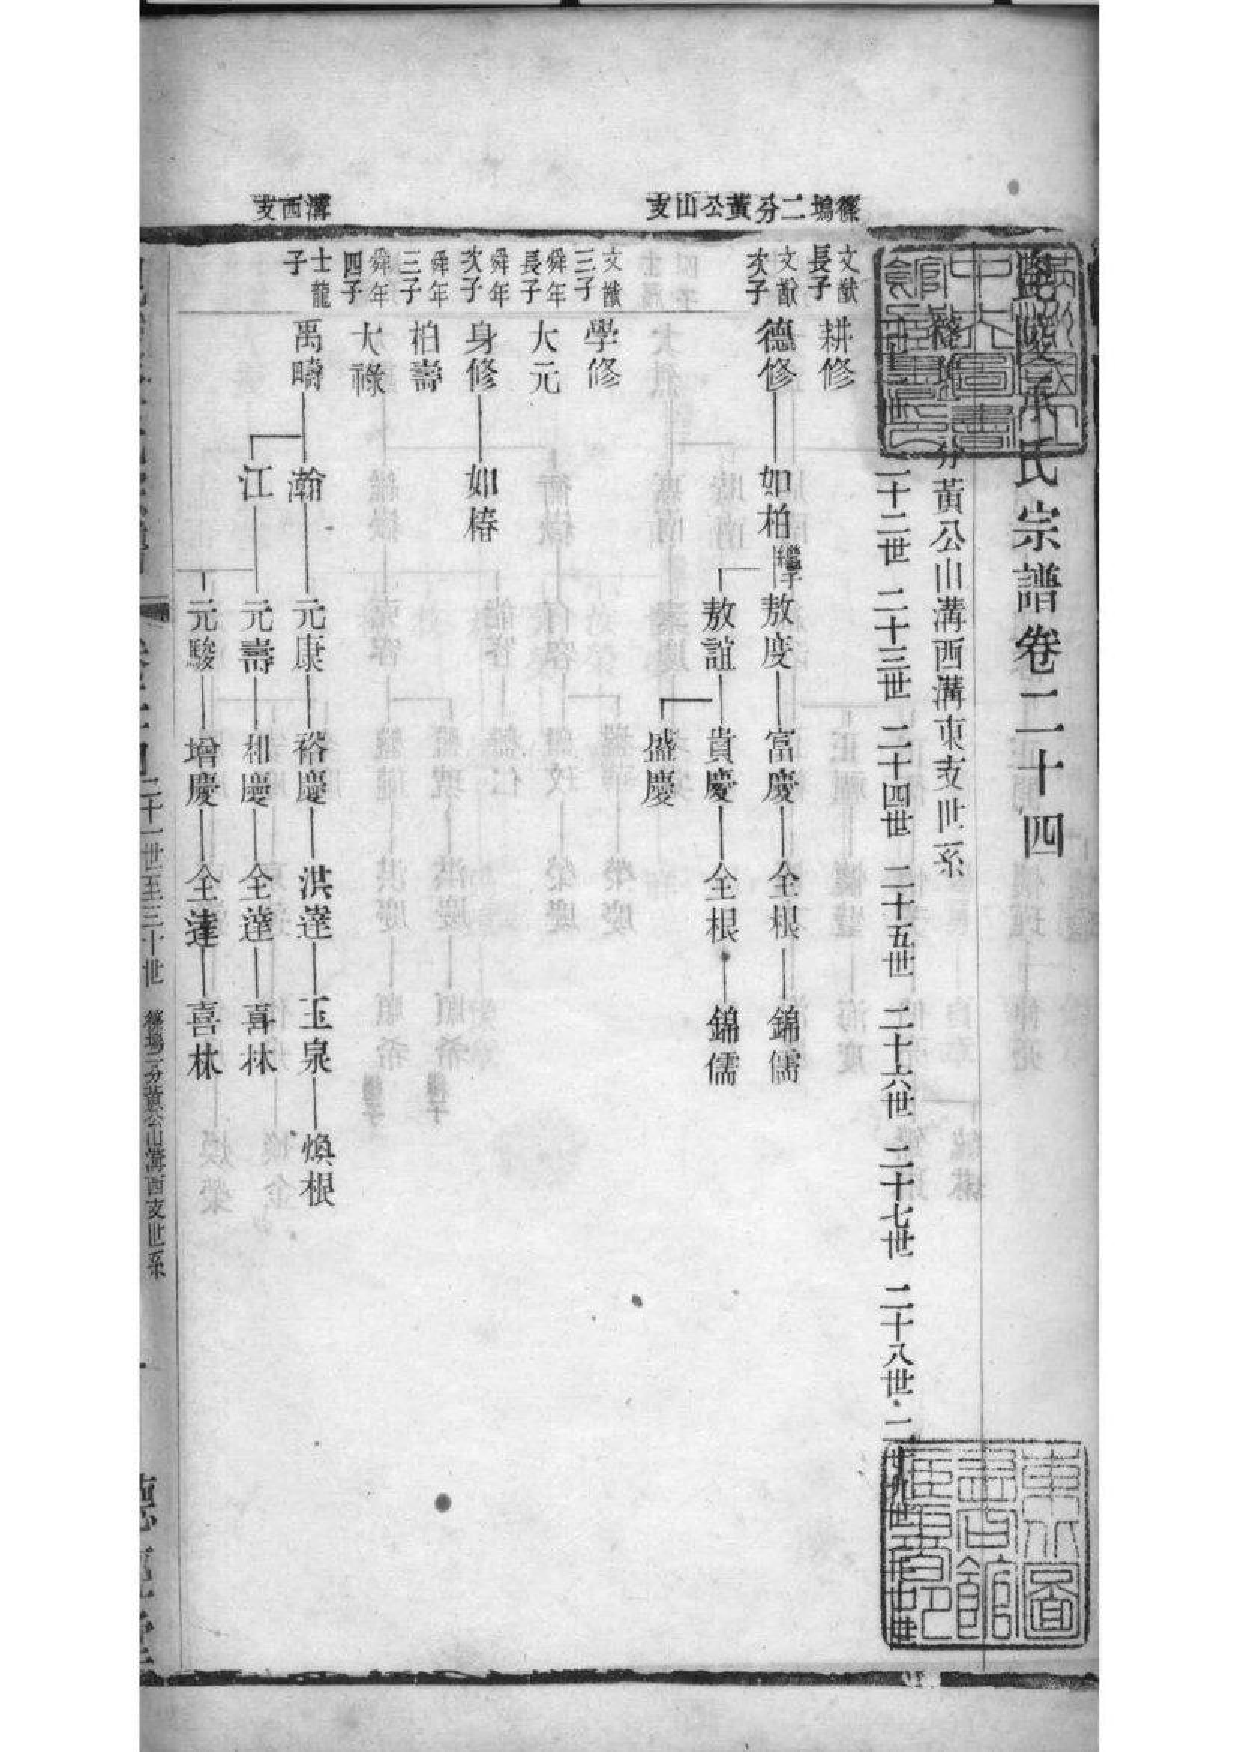 毘陵承氏宗譜卷二十四
分黃公山溝西溝東支世系
二十二世 二十三世 二十四世 二十五世 二十六世 二十七世 二十八世
二分黃公山支
文猷長子 耕修
文猷次子 德修 如柏 敖度 富慶 全根 錦儒
敖誼 貴慶 全根 錦儒
盛慶
文猷三子 學修
舜年長子 大元
舜年次子 身修 如椿
舜年三子 柏壽
舜年四子 大祿
溝西支
士龍子 禹疇 瀚 元康 裕慶 洪達 玉泉 煥根
江 元壽 和慶 全達 喜林
元駿 增慶 全達 喜林
二十一世至三十世 塢二分黃公山溝西支世系